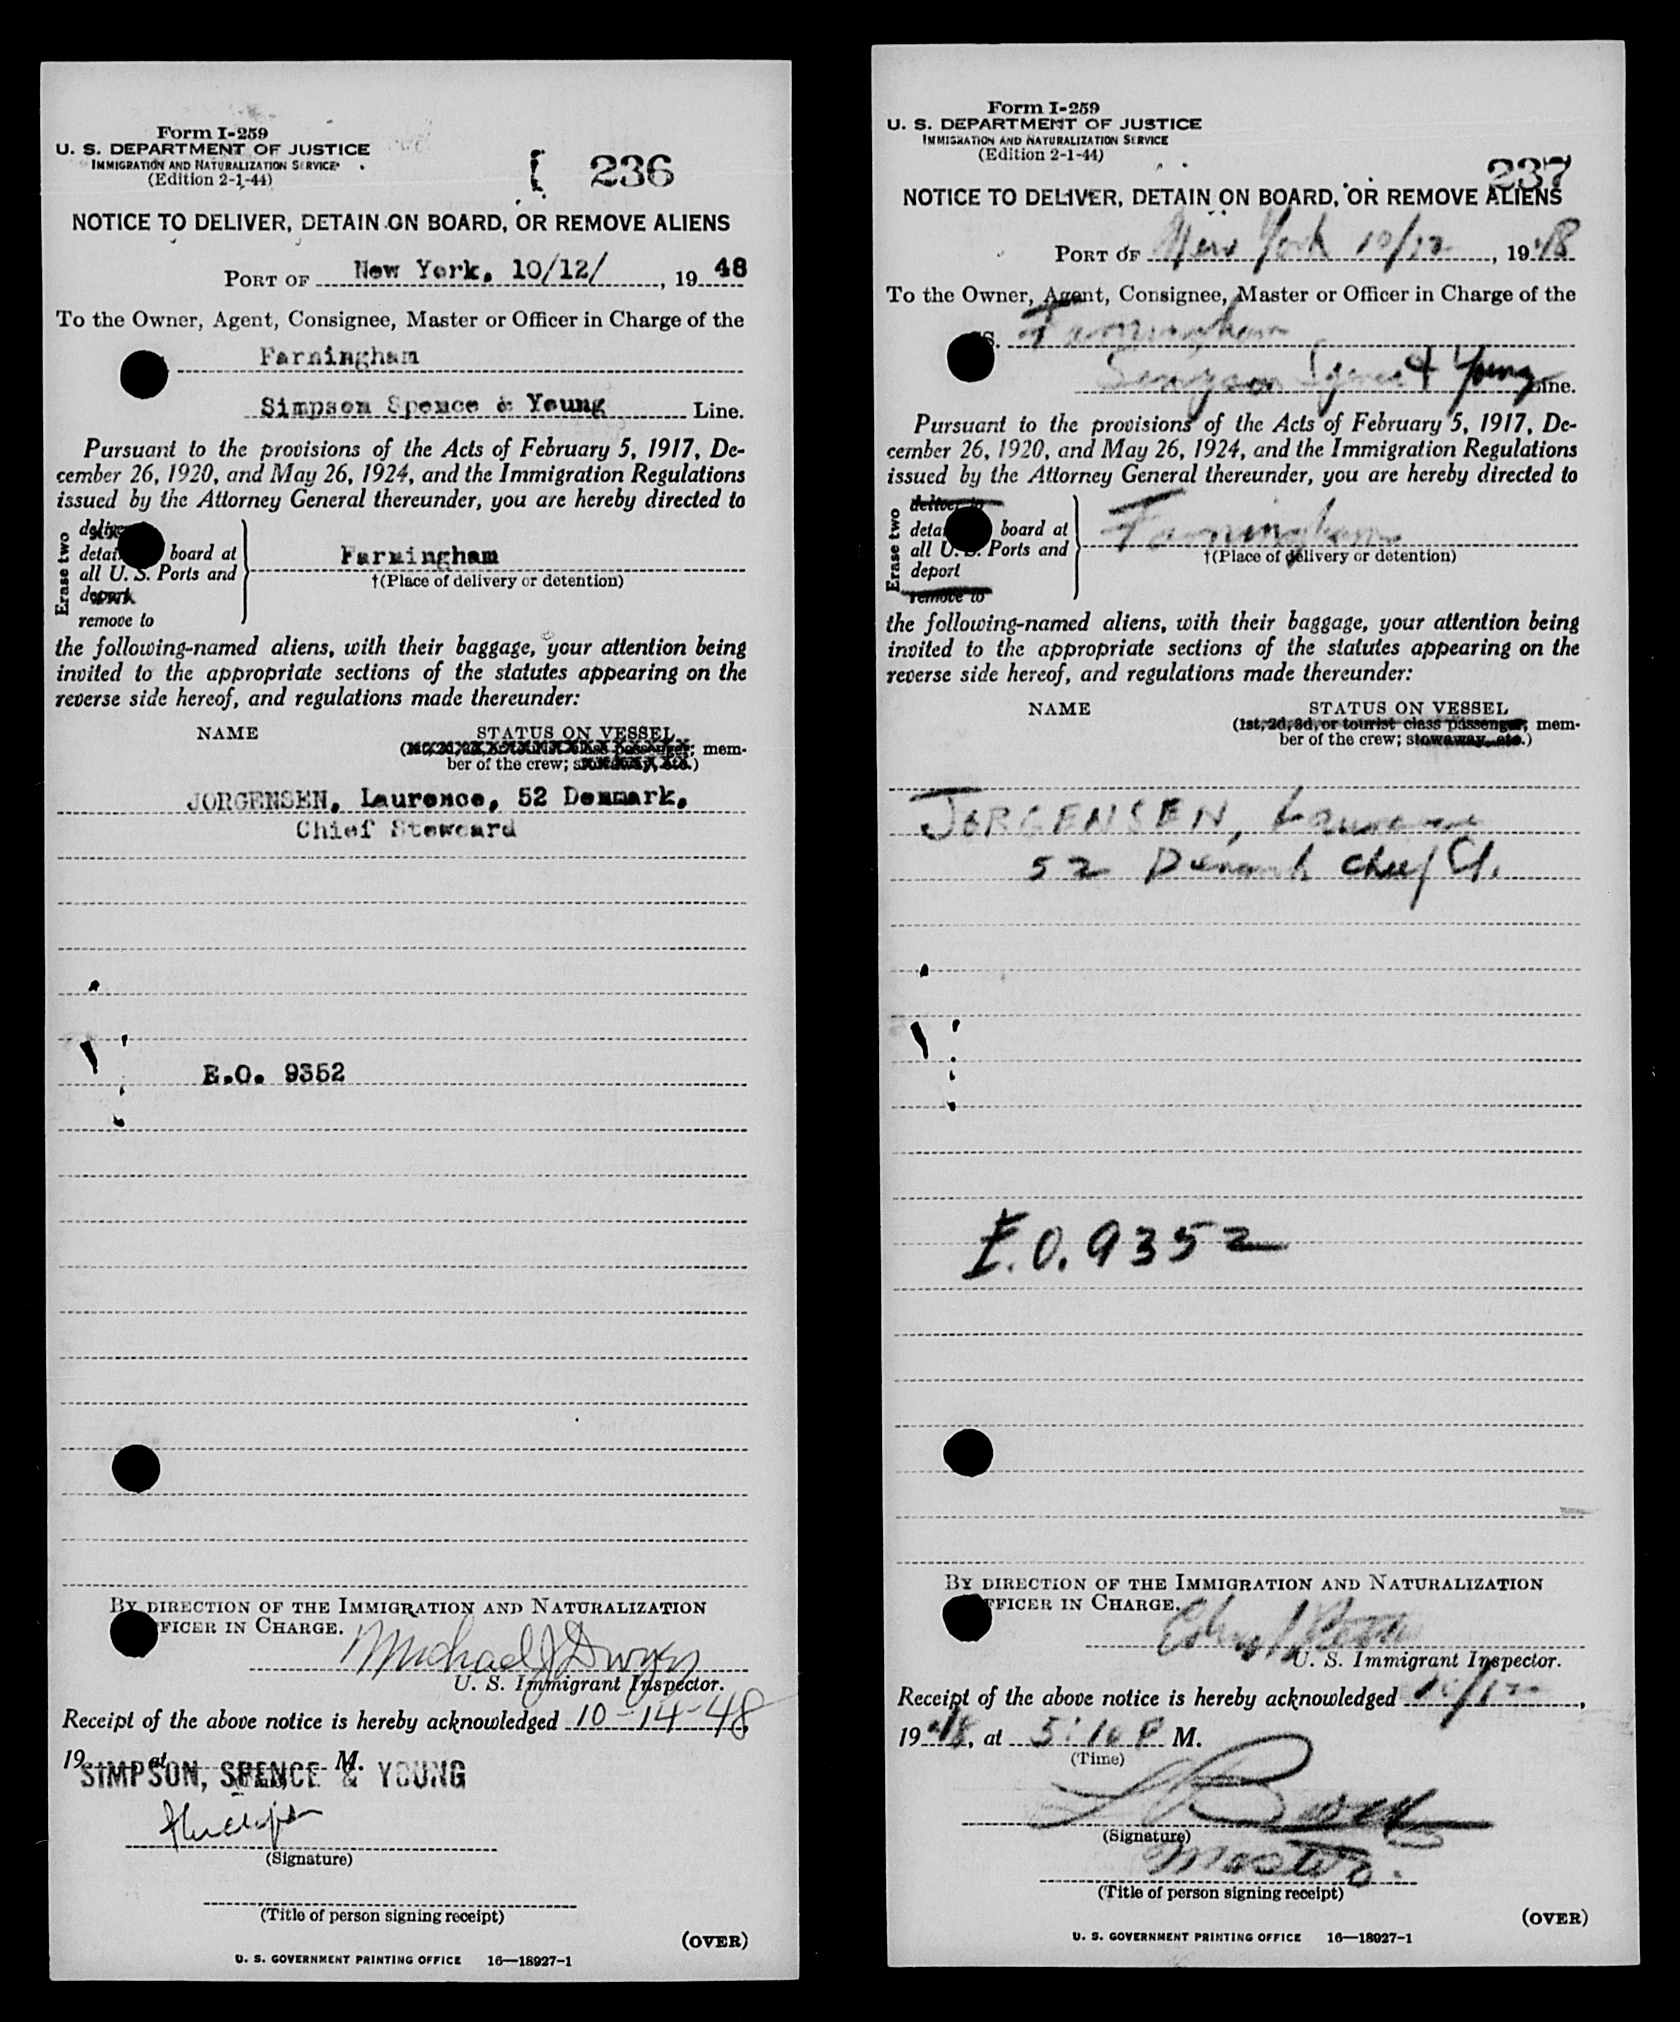 Form I-259
U. S. DEPARTMENT OF JUSTICE
IMMIGRATION AND NATURALIZATION SERVICE
(Edition 2-1-44)
236
NOTICE TO DELIVER, DETAIN ON BOARD, OR REMOVE ALIENS
PORT OF New York, 10/12/, 19 48
To the Owner, Agent, Consignee, Master or Officer in Charge of the
Farningham
Simpson Spence & Young Line.
Pursuant to the provisions of the Acts of February 5, 1917, De-
cember 26, 1920, and May 26, 1924, and the Immigration Regulations
issued by the Attorney General thereunder, you are hereby directed to
Erase two
board at
all U. S. Ports and
depork
remove to
Farmingham
†(Place of delivery or detention)
the following-named aliens, with their baggage, your attention being
invited to the appropriate sections of the statutes appearing on the
reverse side hereof, and regulations made thereunder:
NAME STATUS ON VESSEL
class passenger; mem-
ber of the crew;
JORGENSEN, Laurence, 52 Denmark,
Chief Steweard
E.O. 9352
BY DIRECTION OF THE IMMIGRATION AND NATURALIZATION
FICER IN CHARGE.
Michael J Dwyer
U. S. Immigrant Inspector.
Receipt of the above notice is hereby acknowledged 10-14-48,
19 at M.
SIMPSON, SPENCE & YOUNG
(Signature)
(Title of person signing receipt)
(OVER)
U. S. GOVERNMENT PRINTING OFFICE 16—18927-1
Form I-259
U. S. DEPARTMENT OF JUSTICE
IMMIGRATION AND NATURALIZATION SERVICE
(Edition 2-1-44)
237
NOTICE TO DELIVER, DETAIN ON BOARD, OR REMOVE ALIENS
PORT OF New York 10/12, 1948
To the Owner, Agent, Consignee, Master or Officer in Charge of the
SS. Farningham
Simpson Spence & Young Line.
Pursuant to the provisions of the Acts of February 5, 1917, De-
cember 26, 1920, and May 26, 1924, and the Immigration Regulations
issued by the Attorney General thereunder, you are hereby directed to
Erase two
deliver to
board at
all U. S. Ports and
deport
remove to
Farningham
†(Place of delivery or detention)
the following-named aliens, with their baggage, your attention being
invited to the appropriate sections of the statutes appearing on the
reverse side hereof, and regulations made thereunder:
NAME STATUS ON VESSEL
(1st, 2d, 3d, or tourist class passenger; mem-
ber of the crew; stowaway, etc.)
JORGENSEN, Laurence
52 Denmark Chief St.
E.O. 9352
BY DIRECTION OF THE IMMIGRATION AND NATURALIZATION
FFICER IN CHARGE.
U. S. Immigrant Inspector.
Receipt of the above notice is hereby acknowledged 10/12,
1948, at 5:10 P M.
(Time)
(Signature)
Master.
(Title of person signing receipt)
(OVER)
U. S. GOVERNMENT PRINTING OFFICE 16—18927-1